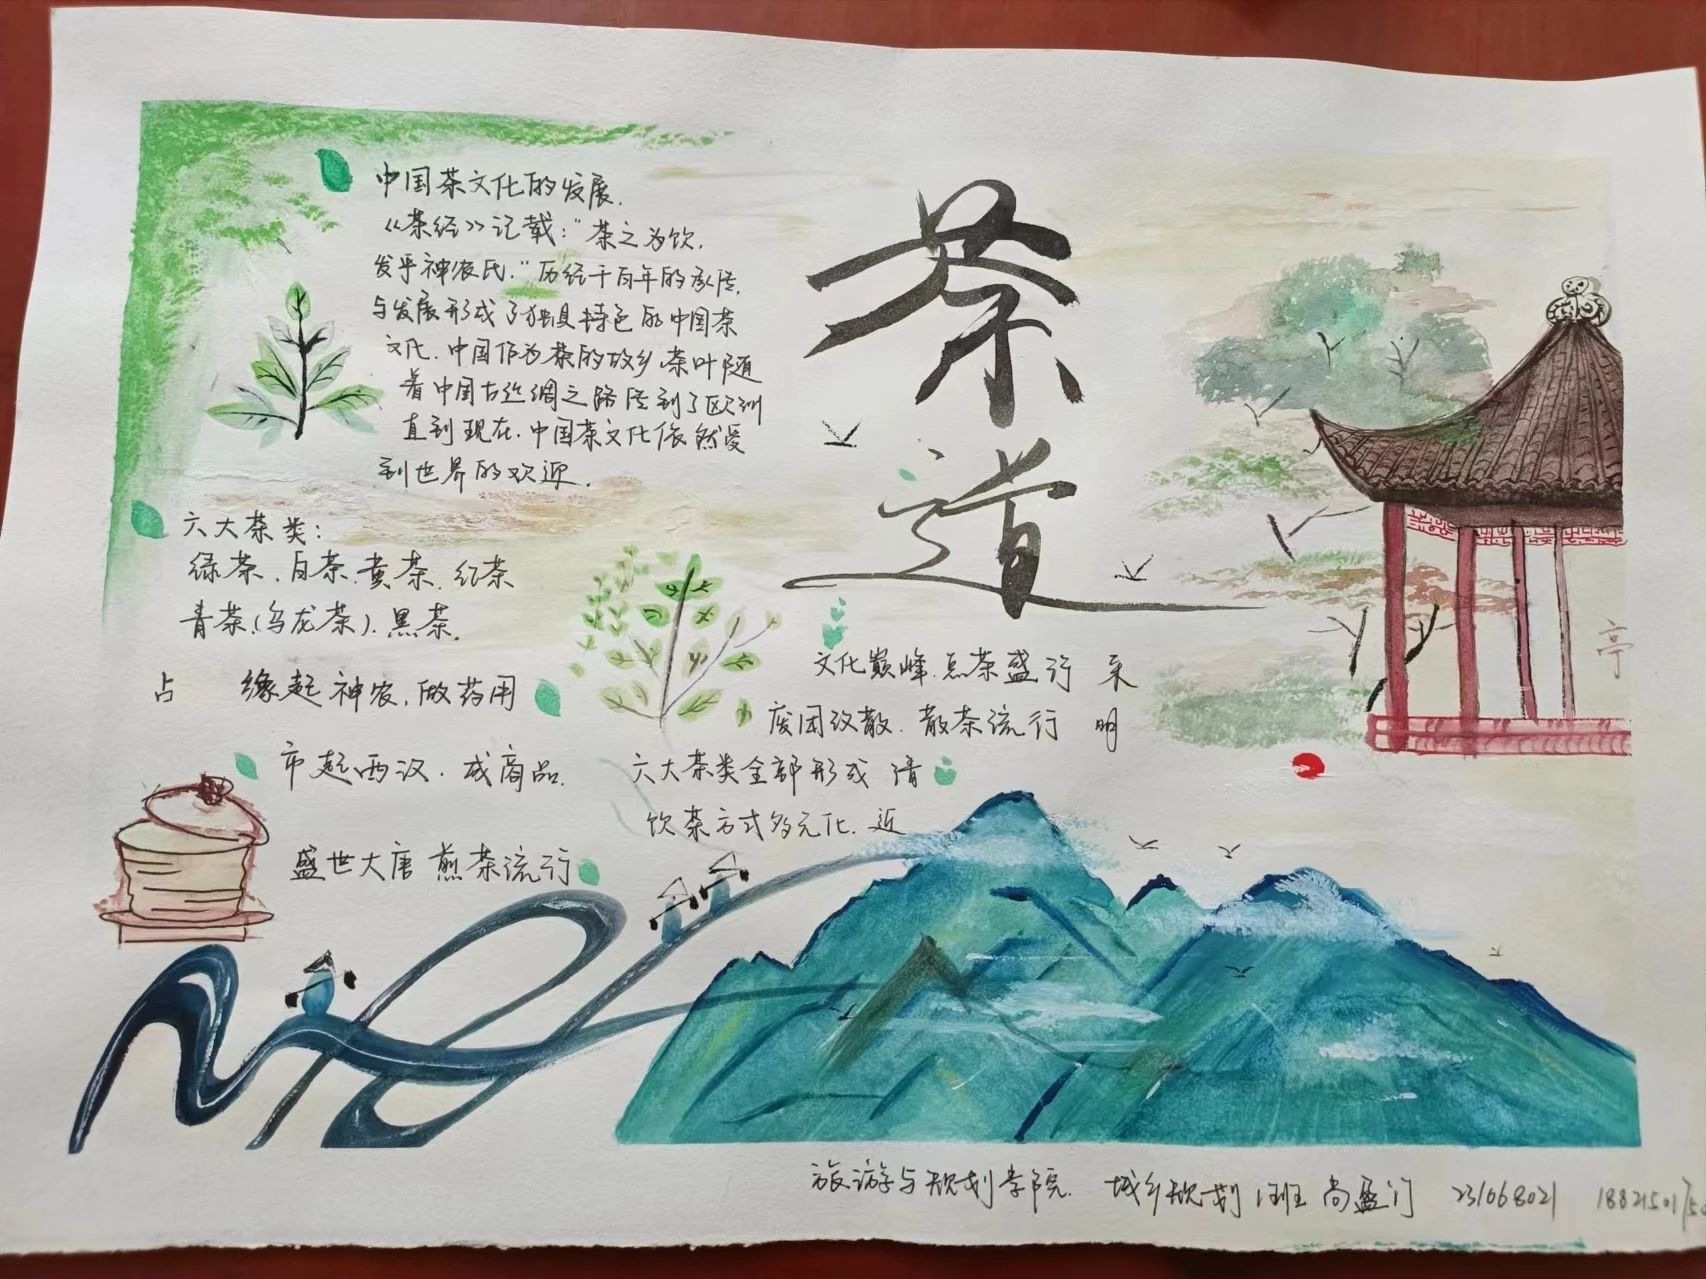 茶
道
中国茶文化的发展.
《茶经》记载:“茶之为饮,
发乎神农氏.”历经千百年的承传,
与发展形成了独具特色的中国茶
文化.中国作为茶的故乡,茶叶随
着中国古丝绸之路传到了欧洲
直到现在.中国茶文化依然受
到世界的欢迎.
六大茶类:
绿茶.白茶.黄茶.红茶
青茶.(乌龙茶).黑茶.
缘起神农,做药用
市起西汉.成商品.
盛世大唐 煎茶流行
文化巅峰.点茶盛行 宋
废团改散.散茶流行 明
六大茶类全部形成 清
饮茶方式多元化. 近
亭
旅游与规划学院. 城乡规划 1班 尚盈门 231068021